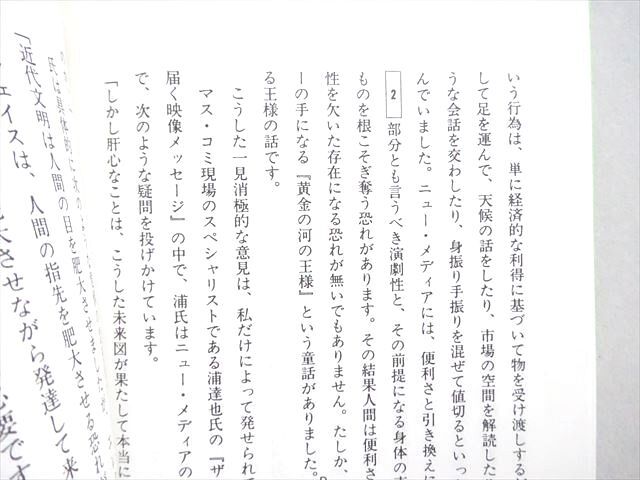 いう行為は、単に経済的な利得に基づいて物を受け渡しする
して足を運んで、天候の話をしたり、市場の空間を解読した
うな会話を交わしたり、身振り手振りを混ぜて値切るといっ
んでいました。ニュー・メディアには、便利さと引き換えに
2 部分とも言うべき演劇性と、その前提になる身体の
ものを根こそぎ奪う恐れがあります。その結果人間は便利さ
性を欠いた存在になる恐れが無いでもありません。たしか、
ーの手になる『黄金の河の王様』という童話がありました。
る王様の話です。
こうした一見消極的な意見は、私だけによって発せられて
マス・コミ現場のスペシャリストである浦達也氏の『ザ
届く映像メッセージ』の中で、浦氏はニュー・メディアの
で、次のような疑問を投げかけています。
「しかし肝心なことは、こうした未来図が果たして本当に
「近代文明は人間の目を肥大させ
フェイスは、人間の指先を肥大させる恐れが
大させながら発達して来
必要です